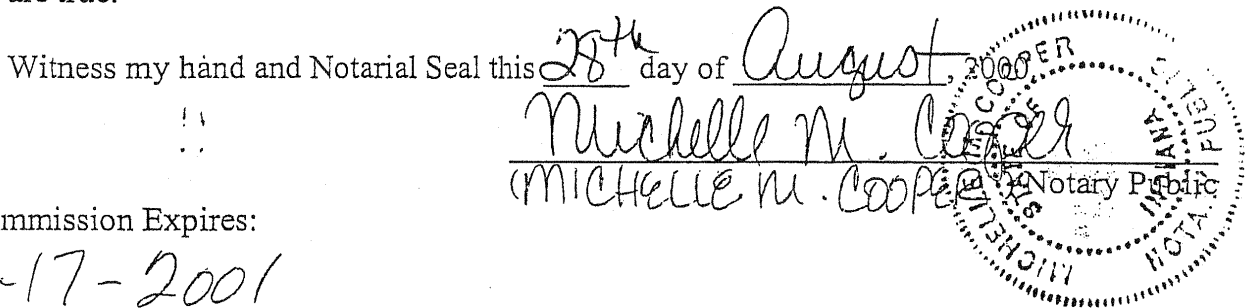 are true.
Witness my hand and Notarial Seal this 28th day of August, 2000
Michelle M. Cooper
(MICHELLE M. COOPER) Notary Public
mmission Expires:
-17-2001
MICHELLE M COOPER
NOTARY PUBLIC
STATE OF INDIANA